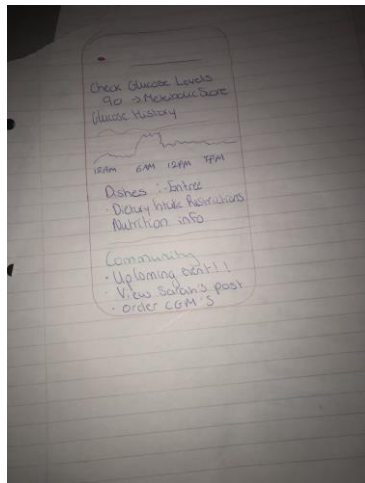 Check Glucose Levels
90 → Metabolic Score
Glucose History
12AM 6AM 12PM 7PM
Dishes :- Entree
· Dietary Intake Restrictions
Nutrition info
Community
· Upcoming event!!
· View Sarah's post
· order CGM'S